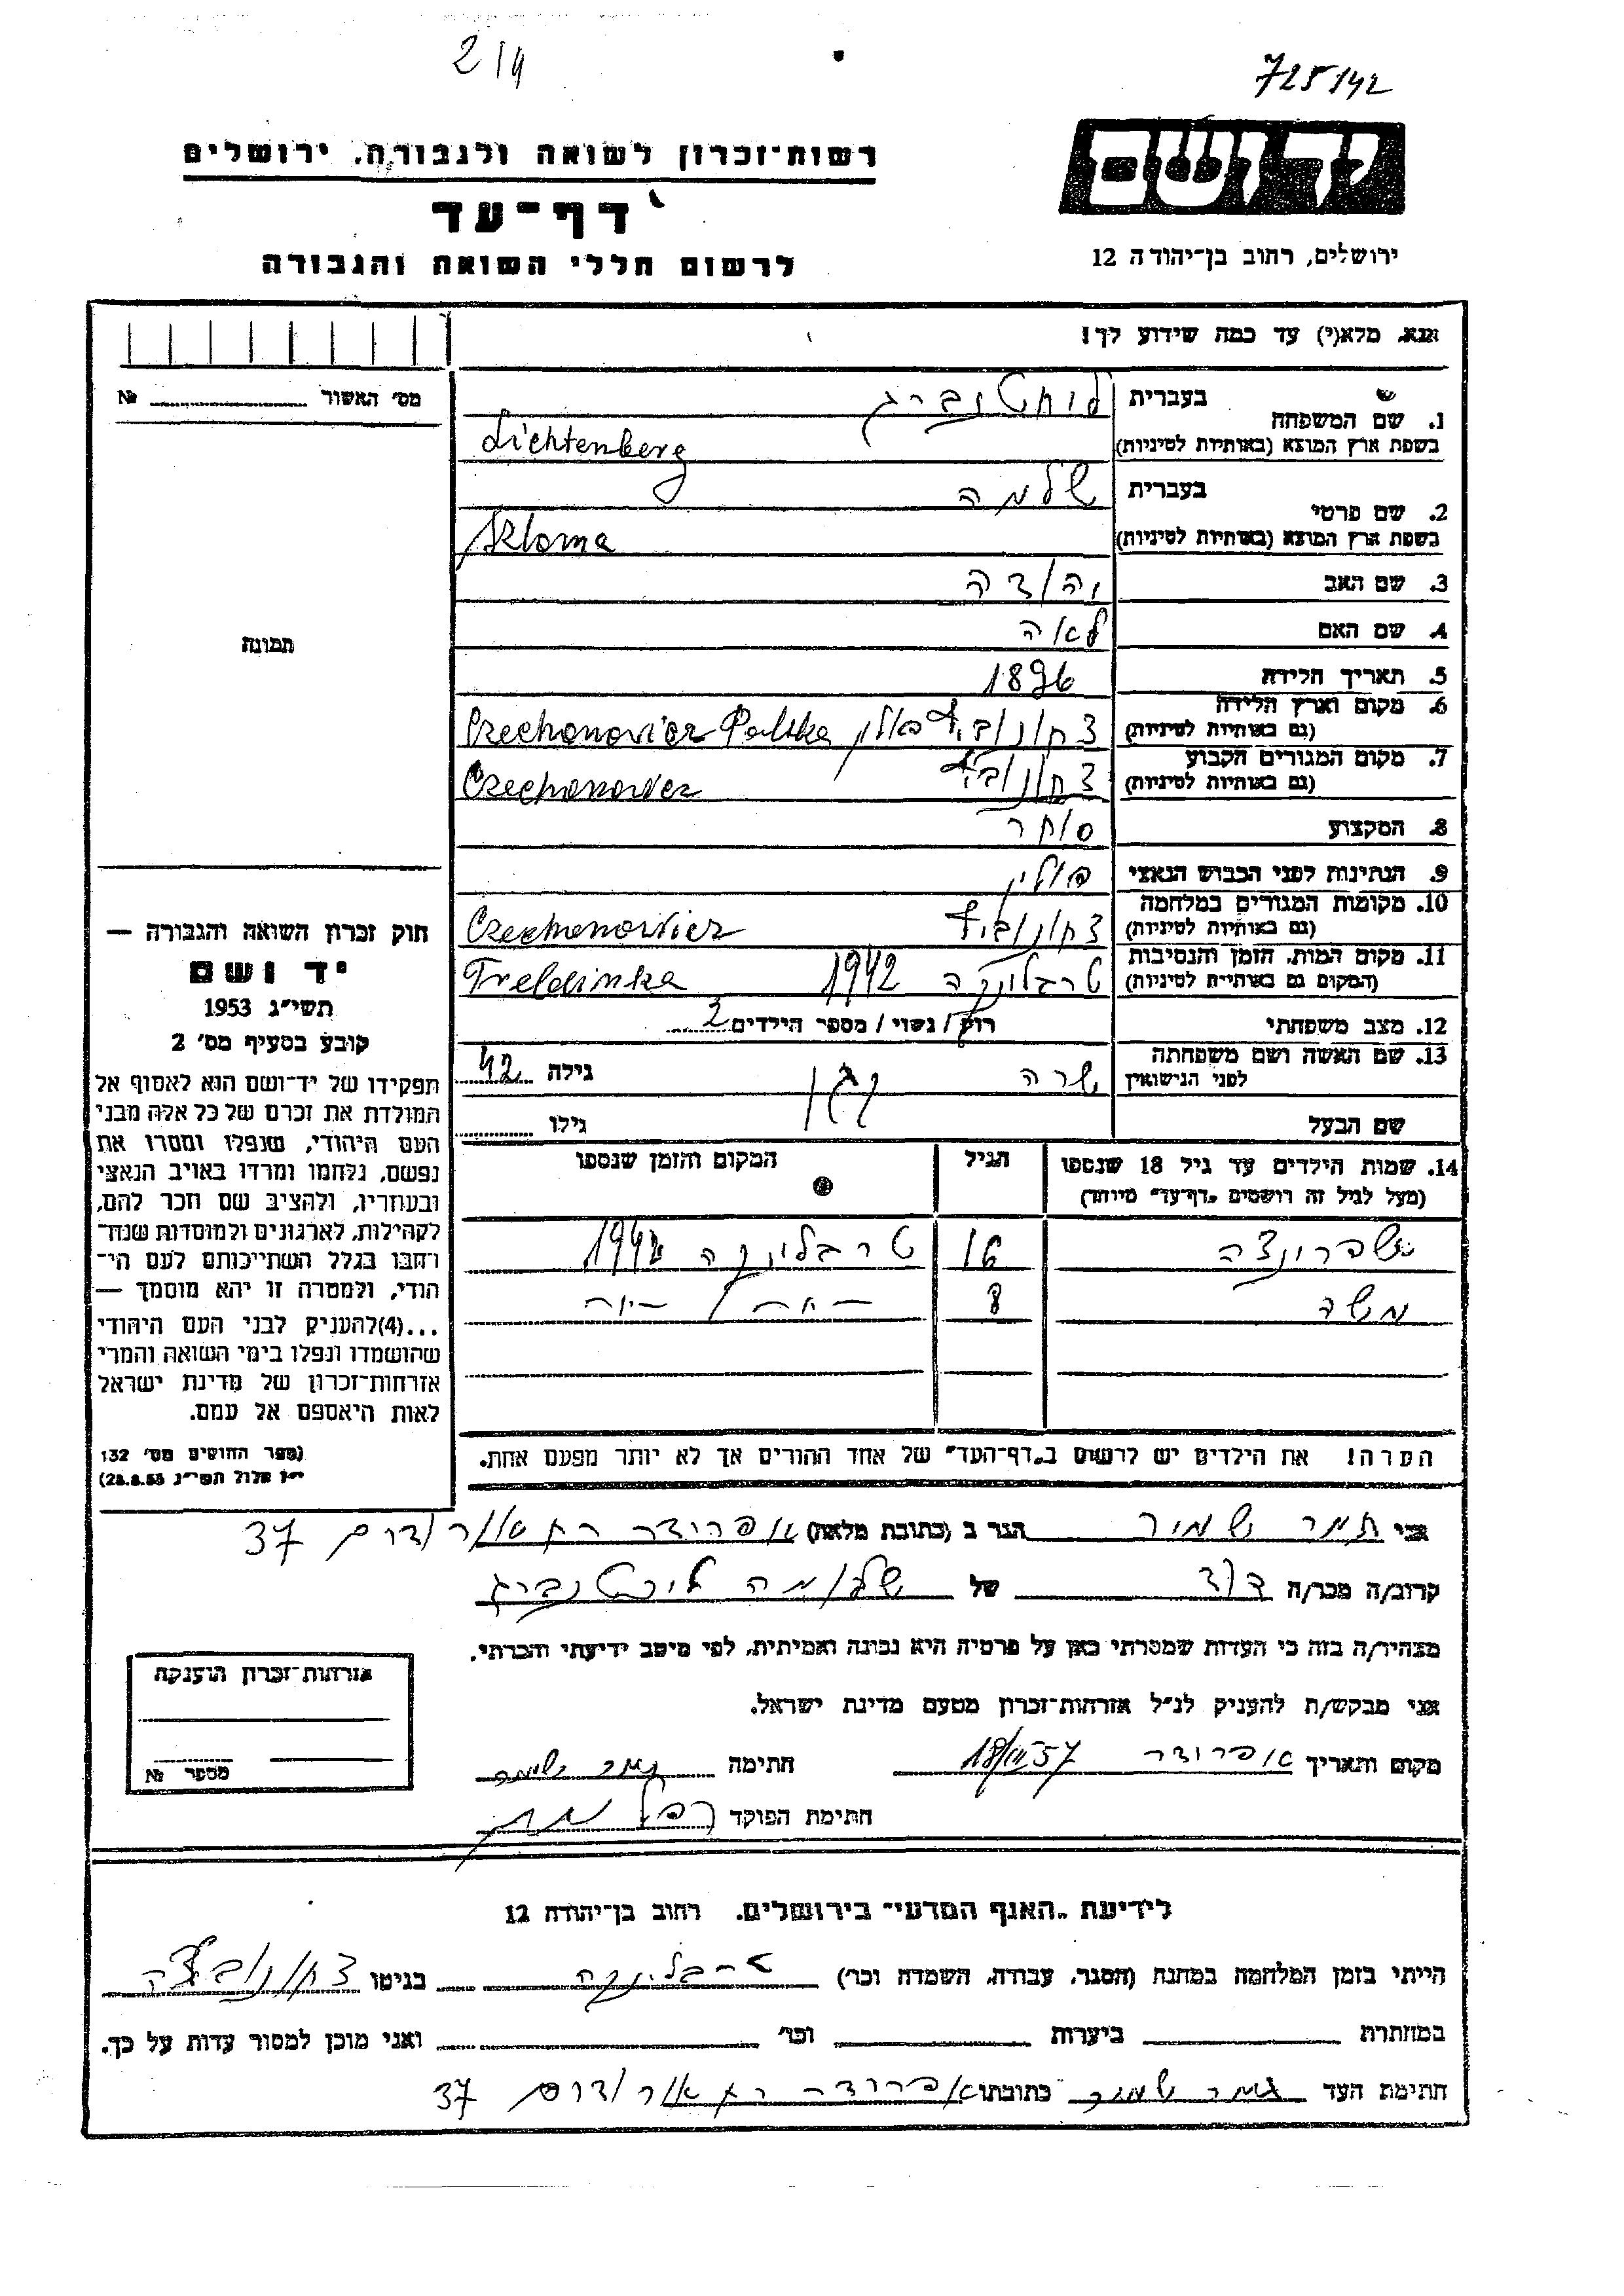 2/4
725/42
יד ושם
רשות־זכרון לשואה ולגבורה, ירושלים
דף־עד
לרשום חללי השואה והגבורה
ירושלים, רחוב בן־יהודה 12
אנא, מלא(י) עד כמה שידוע לך!
מס' האשור № ........
1. שם המשפחה בעברית לוחטנברג
בשפת ארץ המוצא (באותיות לטיניות) Lichtenberg
2. שם פרטי בעברית שלמה
בשפת ארץ המוצא (באותיות לטיניות) Szloma
3. שם האב יהודה
4. שם האם לאה
5. תאריך הלידה 1896
6. מקום וארץ הלידה (גם באותיות לטיניות) פולין Czechonovicz Polska
7. מקום המגורים הקבוע (גם באותיות לטיניות) Czechonovicz
8. המקצוע סוחר
9. הנתינות לפני הכבוש הנאצי פולין
10. מקומות המגורים במלחמה (גם באותיות לטיניות) Czechonovicz
11. מקום המות, הזמן והנסיבות (המקום גם באותיות לטיניות) טרבלינקה 1942 Treblinka
12. מצב משפחתי רווק / נשוי / מספר הילדים 2
13. שם האשה ושם משפחתה לפני הנישואין שרה גילה 42
שם הבעל גילו ........
14. שמות הילדים עד גיל 18 שנספו הגיל המקום והזמן שנספו
(מעל לגיל זה רושמים „דף־עד" מיוחד)
שפרינצה 16 טרבלינקה 1942
משה 8
הערה! את הילדים יש לרשום ב„דף־העד" של אחד ההורים אך לא יותר מפעם אחת.
תמונה
חוק זכרון השואה והגבורה —
יד ושם
תשי"ג 1953
קובע בסעיף מס' 2
תפקידו של יד־ושם הוא לאסוף אל
המולדת את זכרם של כל אלה מבני
העם היהודי, שנפלו ומסרו את
נפשם, נלחמו ומרדו באויב הנאצי
ובעוזריו, ולהציב שם וזכר להם,
לקהילות, לארגונים ולמוסדות שנח־
רבו בגלל השתייכותם לעם הי־
הודי, ולמטרה זו יהא מוסמך —
...(4)להעניק לבני העם היהודי
שהושמדו ונפלו בימי השואה והמרי
אזרחות־זכרון של מדינת ישראל
לאות היאספם אל עמם.
(ספר החוקים מס' 132
י"ז אלול תשי"ג 28.8.53)
אני תמר שמיר הגר ב (כתובת מלאה) אפרידר 37
קרוב/ה מכר/ה דוד של שלומה ליכטנברג
מצהיר/ה בזה כי העדות שמסרתי כאן על פרטיה היא נכונה ואמיתית, לפי מיטב ידיעתי והכרתי.
אני מבקש/ת להעניק לנ"ל אזרחות־זכרון מטעם מדינת ישראל.
מקום ותאריך אפרידר 18/III 57 חתימה תמר שמיר
חתימת הפוקד
אזרחות־זכרון הוענקה
מספר №
לידיעת „האגף המדעי" בירושלים, רחוב בן־יהודה 12
הייתי בזמן המלחמה במחנה (הסגר, עבודה, השמדה וכו') טרבלינקה בגיטו
במחתרת ביערות וכו' ואני מוכן למסור עדות על כך.
חתימת העד תמר שמיר כתובתו אפרידר 37